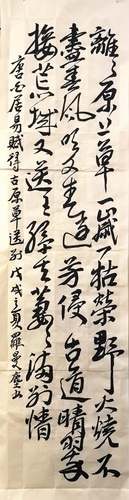 離々原上草一歲一枯榮野火燒不
盡春風吹又生遠芳侵古道晴翠
接荒城又送王孫去萋々滿別情
唐白居易賦得古原草送別戊戌之夏羅曼塵書